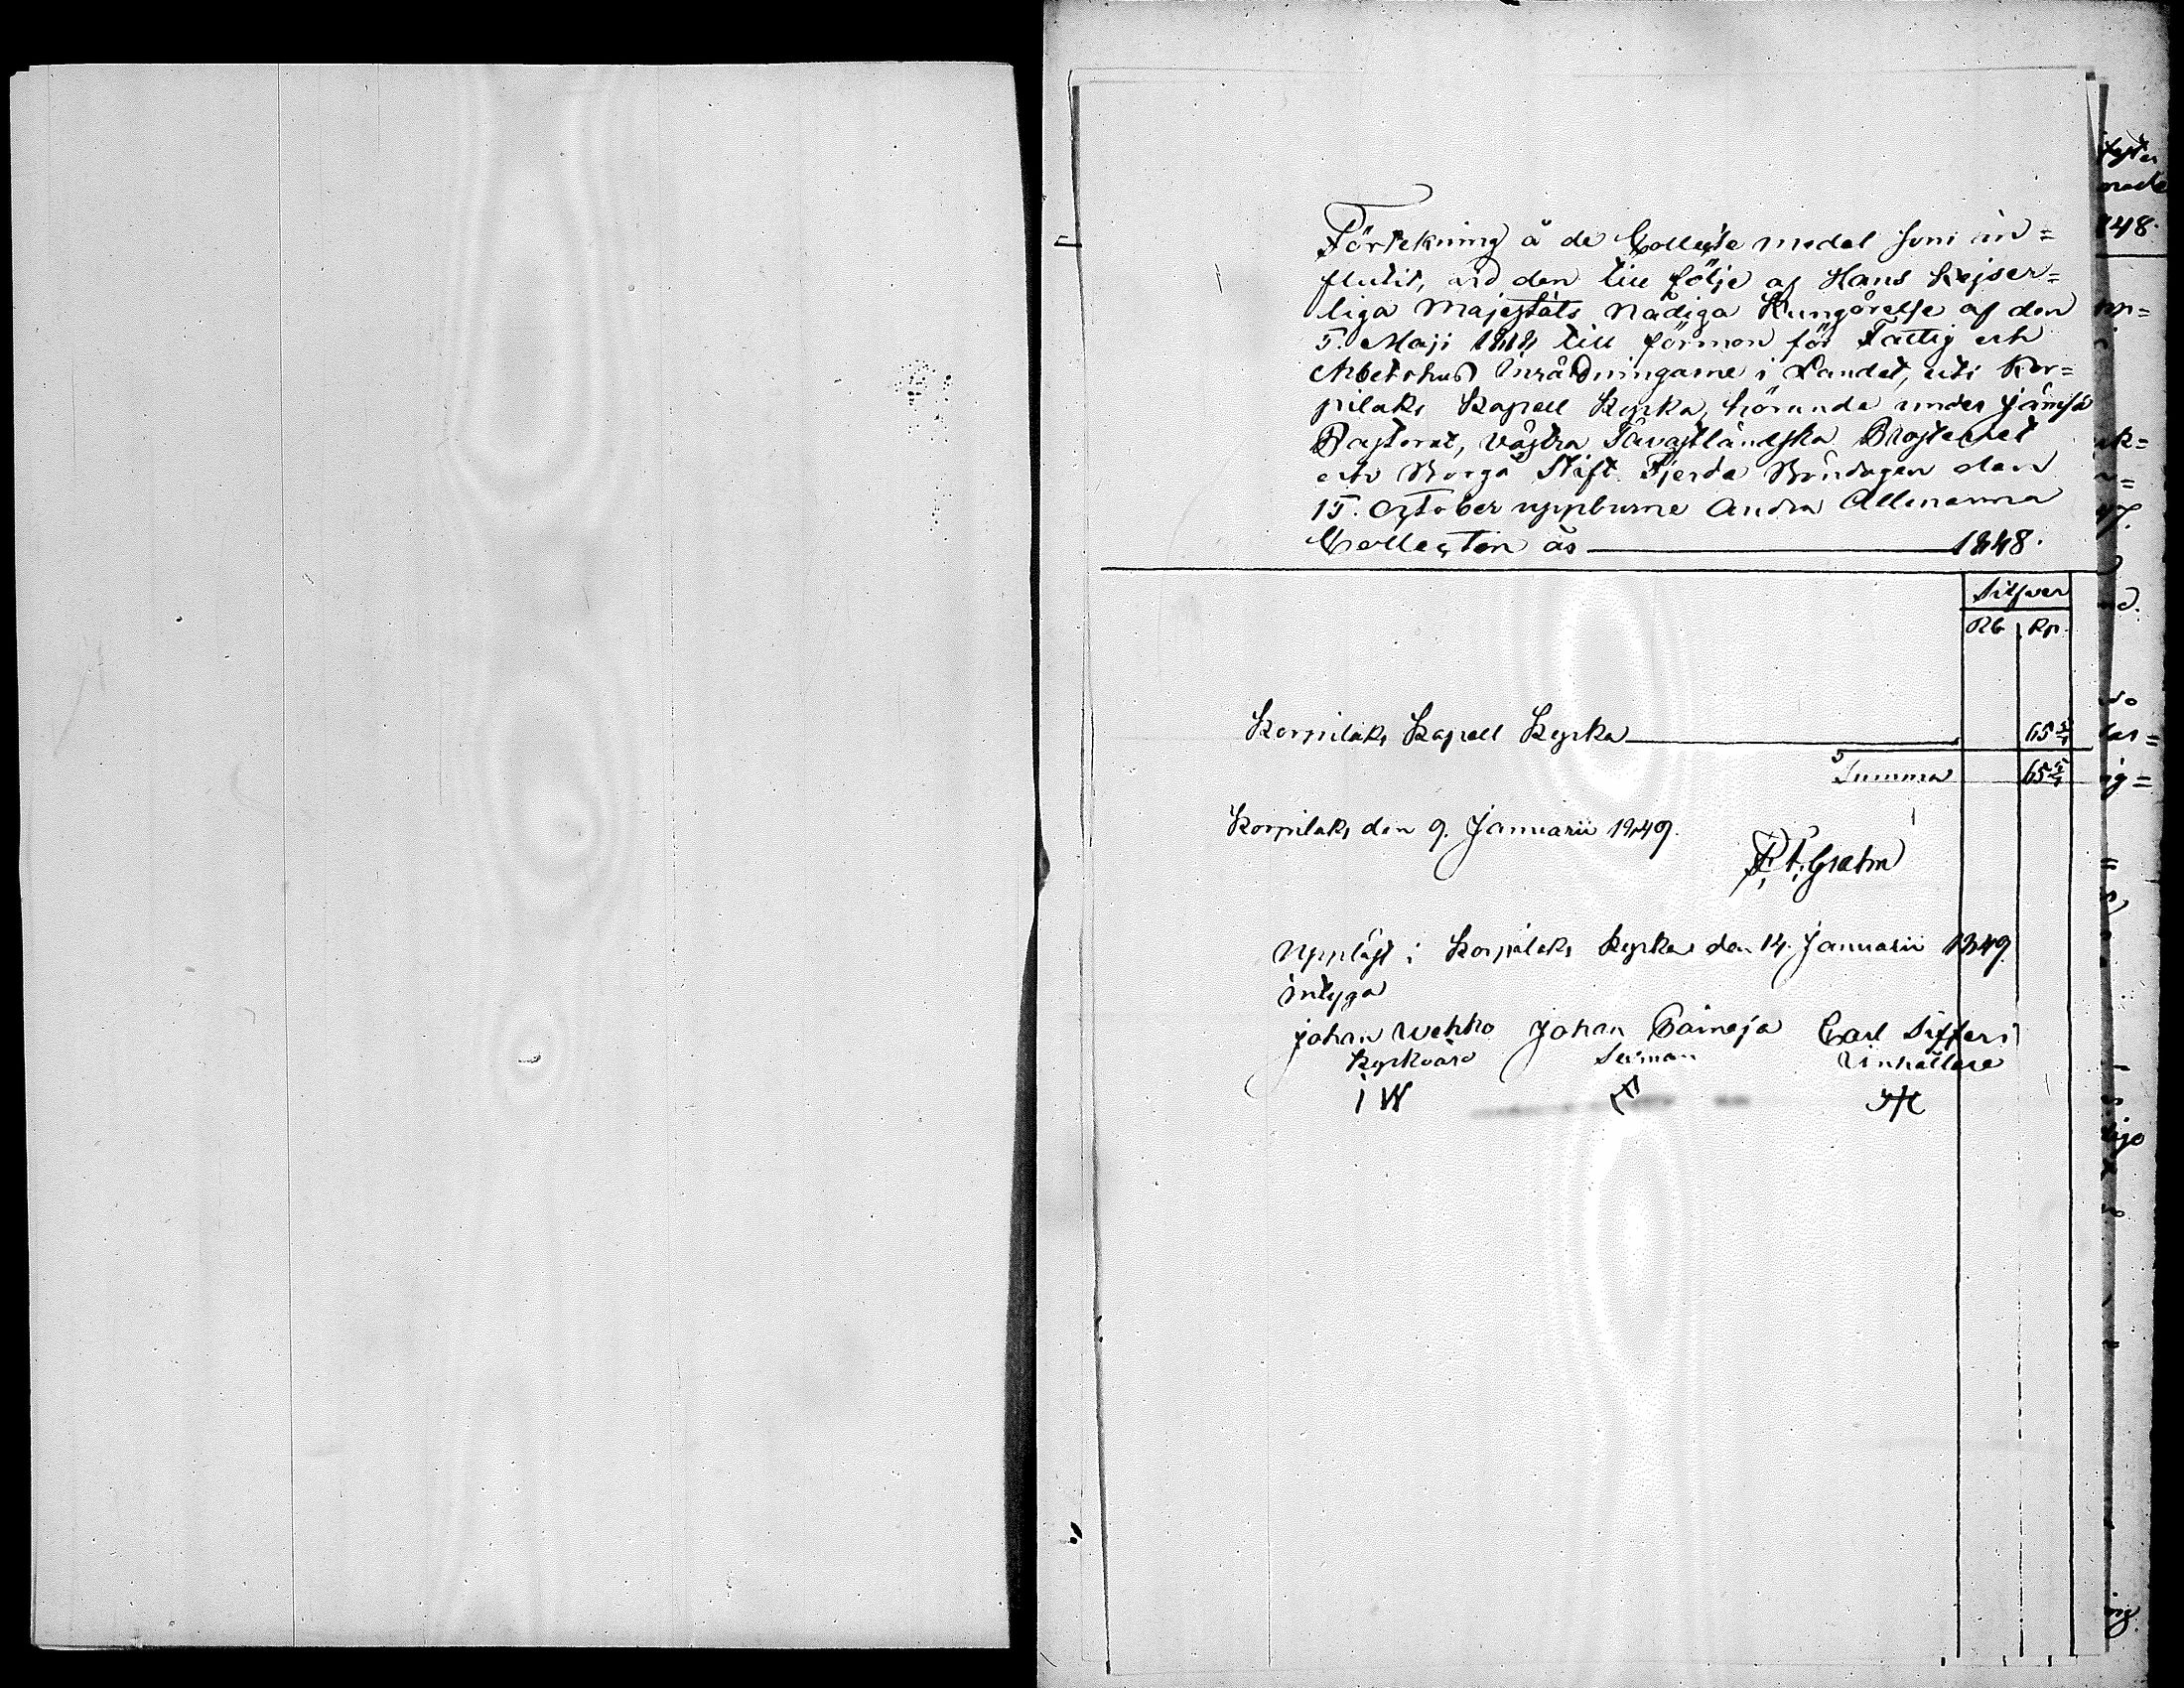 Förtekning å de Collecte medel som in=
flutit, vid den till följe af Hans Kejser=
liga Majestäts Nådiga Kungörelse af den
5. Maji 1848 till förmon för Fattig och
Arbetshus Inrättningarne i Landet, uti Kor=
pilaks Kapell Kyrka, hörande under Jämsä
Pastorat, Västra Tavastländska Prosteriet
och Borgå Stift Fjerde Böndagen den
15. October uppburne Andra Allmänna
Collecten år 1848.
Silfver
Rb Kp.
Korpilaks Kapell Kyrka 65
Summa 65
Korpilaks den 9. Januarii 1849.
Uppläst i Korpilaks Kyrka den 14. Januarii 1849.
intyga
Johan Wehko Johan Päiväja Carl Siffers
Kyrkvärd Sexman Rinhållare
I W